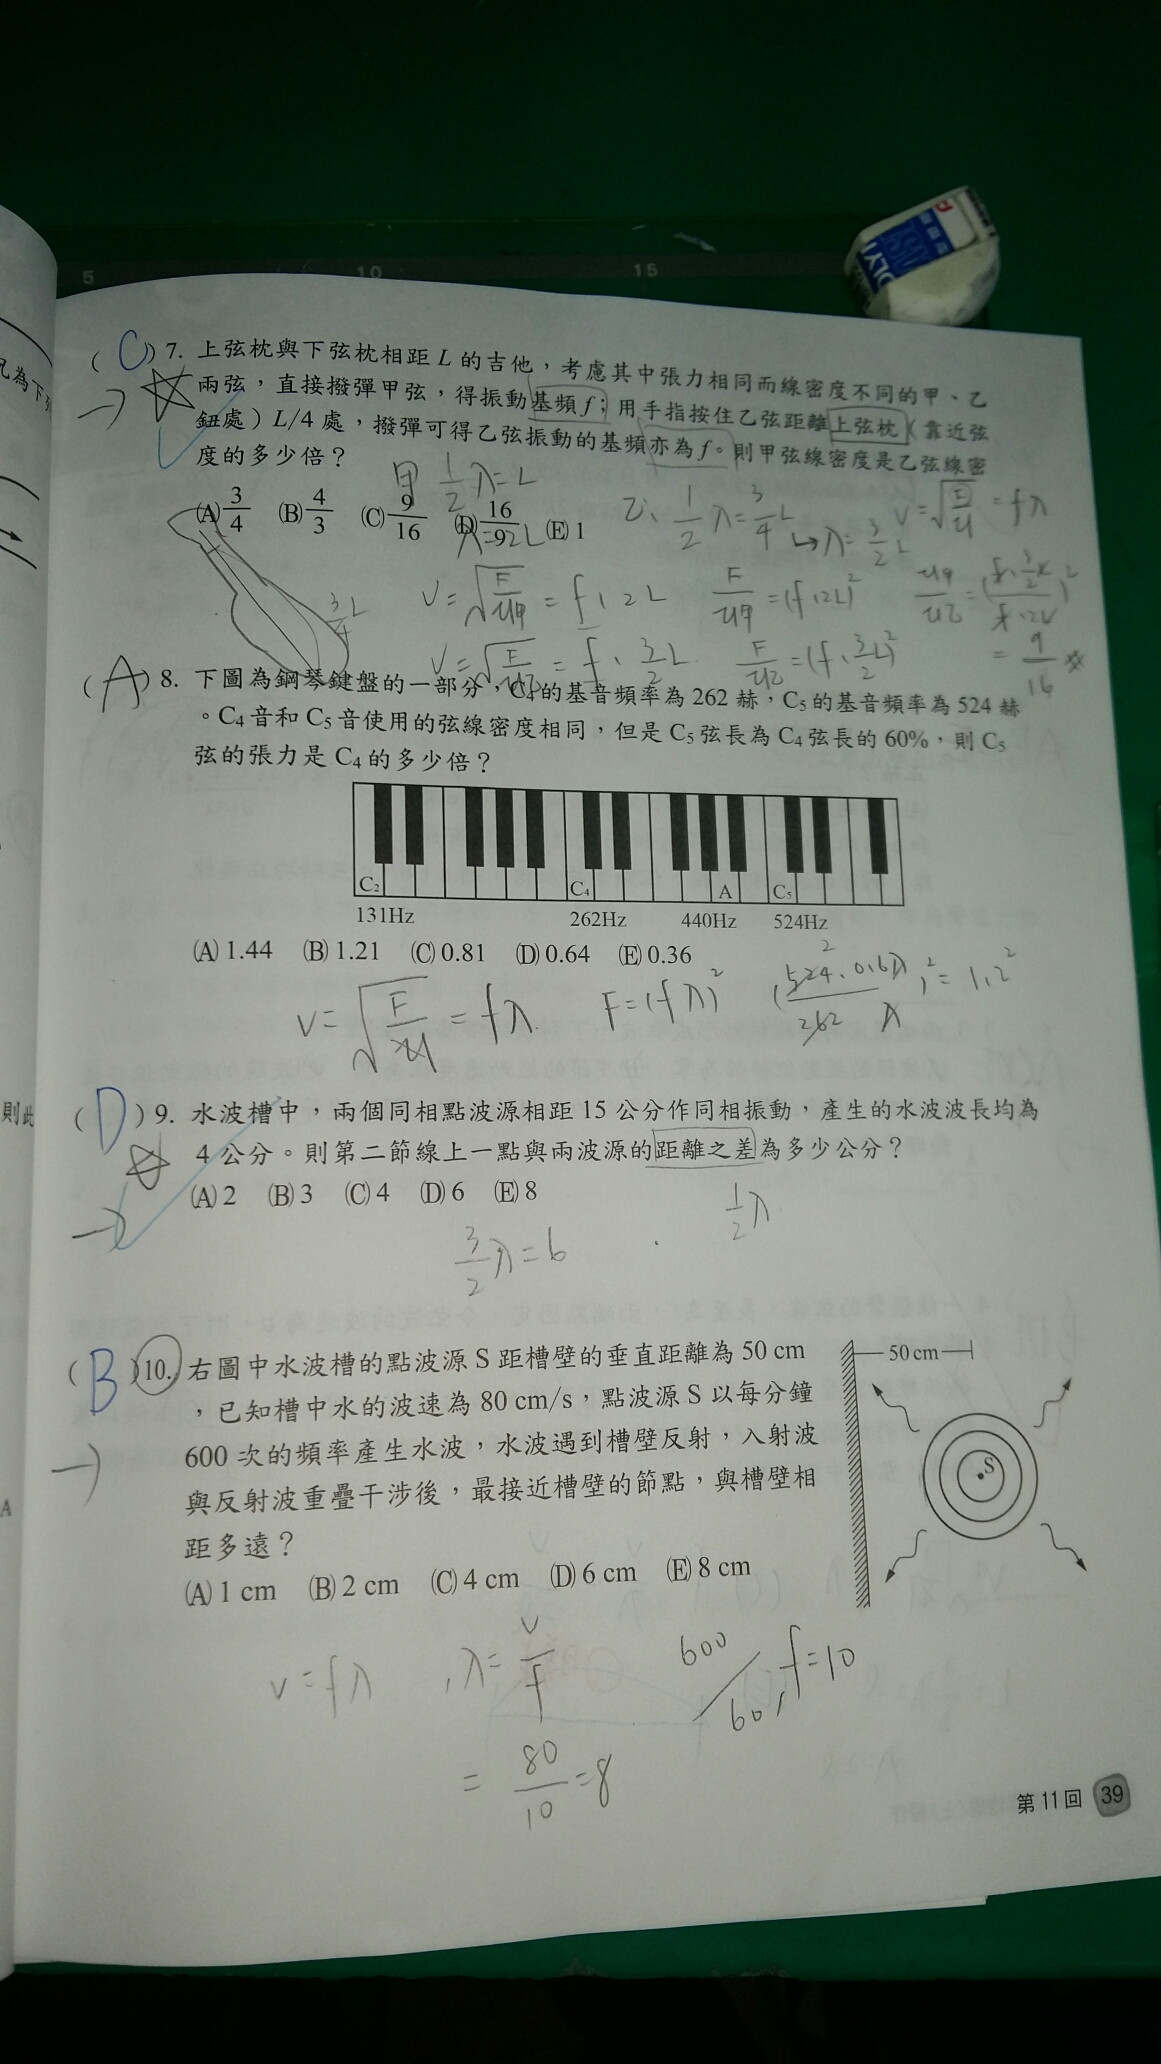 5 10 15
( C ) 7. 上弦枕與下弦枕相距 L 的吉他，考慮其中張力相同而線密度不同的甲、乙
兩弦，直接撥彈甲弦，得振動基頻 f；用手指按住乙弦距離上弦枕（靠近弦
鈕處）L/4 處，撥彈可得乙弦振動的基頻亦為 f。則甲弦線密度是乙弦線密
度的多少倍？
甲 1/2 λ=L
(A) 3/4 (B) 4/3 (C) 9/16 (D) 16/9 (E) 1
λ=2L
乙、1/2 λ=3/4 L
↳ λ=3/2 L
v=√(F/μ) = fλ
V=√(F/μ甲) = f·2L F/μ甲 =(f·2L)² μ甲/μ乙 =(f·3/2 L / f·2L)²
3/4 L
V=√(F/μ乙) = f·3/2 L F/μ乙 =(f·3/2 L)² = 9/16
( A ) 8. 下圖為鋼琴鍵盤的一部分，C4 的基音頻率為 262 赫，C5 的基音頻率為 524 赫
。C4 音和 C5 音使用的弦線密度相同，但是 C5 弦長為 C4 弦長的 60%，則 C5
弦的張力是 C4 的多少倍？
C2 C4 A C5
131Hz 262Hz 440Hz 524Hz
(A) 1.44 (B) 1.21 (C) 0.81 (D) 0.64 (E) 0.36
V=√(F/μ) = fλ F=(fλ)² (524·0.6λ / 262 λ)² = 1.2²
2
( D ) 9. 水波槽中，兩個同相點波源相距 15 公分作同相振動，產生的水波波長均為
4 公分。則第二節線上一點與兩波源的距離之差為多少公分？
(A) 2 (B) 3 (C) 4 (D) 6 (E) 8
1/2 λ
3/2 λ=6
( B ) 10. 右圖中水波槽的點波源 S 距槽壁的垂直距離為 50 cm
，已知槽中水的波速為 80 cm/s，點波源 S 以每分鐘
600 次的頻率產生水波，水波遇到槽壁反射，入射波
與反射波重疊干涉後，最接近槽壁的節點，與槽壁相
距多遠？
(A) 1 cm (B) 2 cm (C) 4 cm (D) 6 cm (E) 8 cm
50 cm
S
v=fλ , λ= v/f 600/60 , f=10
= 80/10 =8
第 11 回 39
則此
A